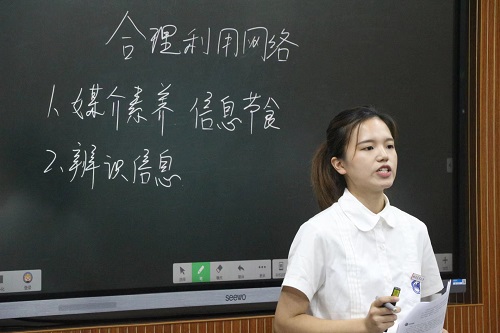 合理利用网络
1、媒介素养 信息节食
2、辨识信息
seewo